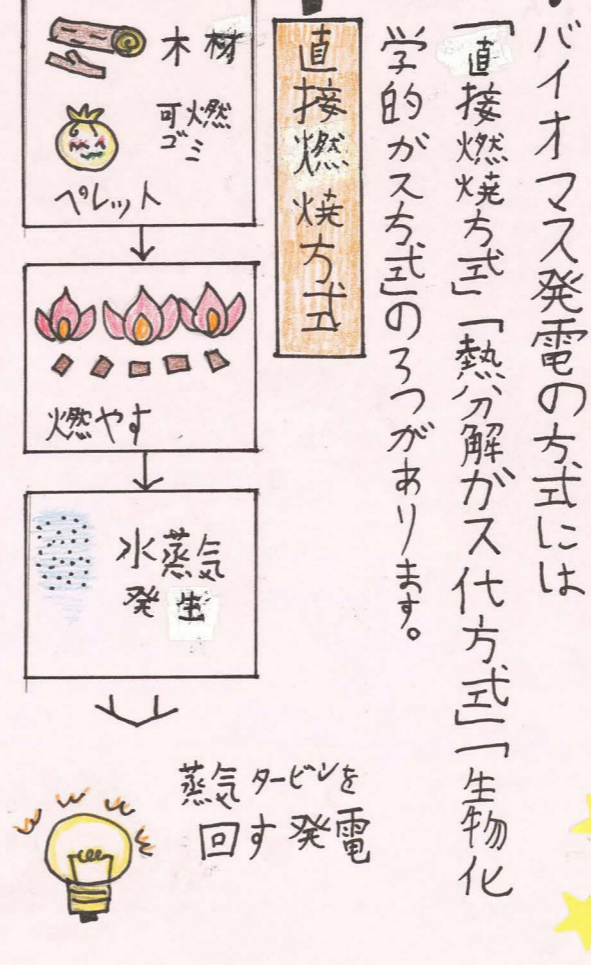 ・バイオマス発電の方式には
「直接燃焼方式」「熱分解ガス代方式」「生物化
学的ガス方式」の3つがあります。
直接燃焼方式
木材
可燃
ゴミ
ペレット
燃やす
水蒸気
発生
蒸気タービンを
回す発電